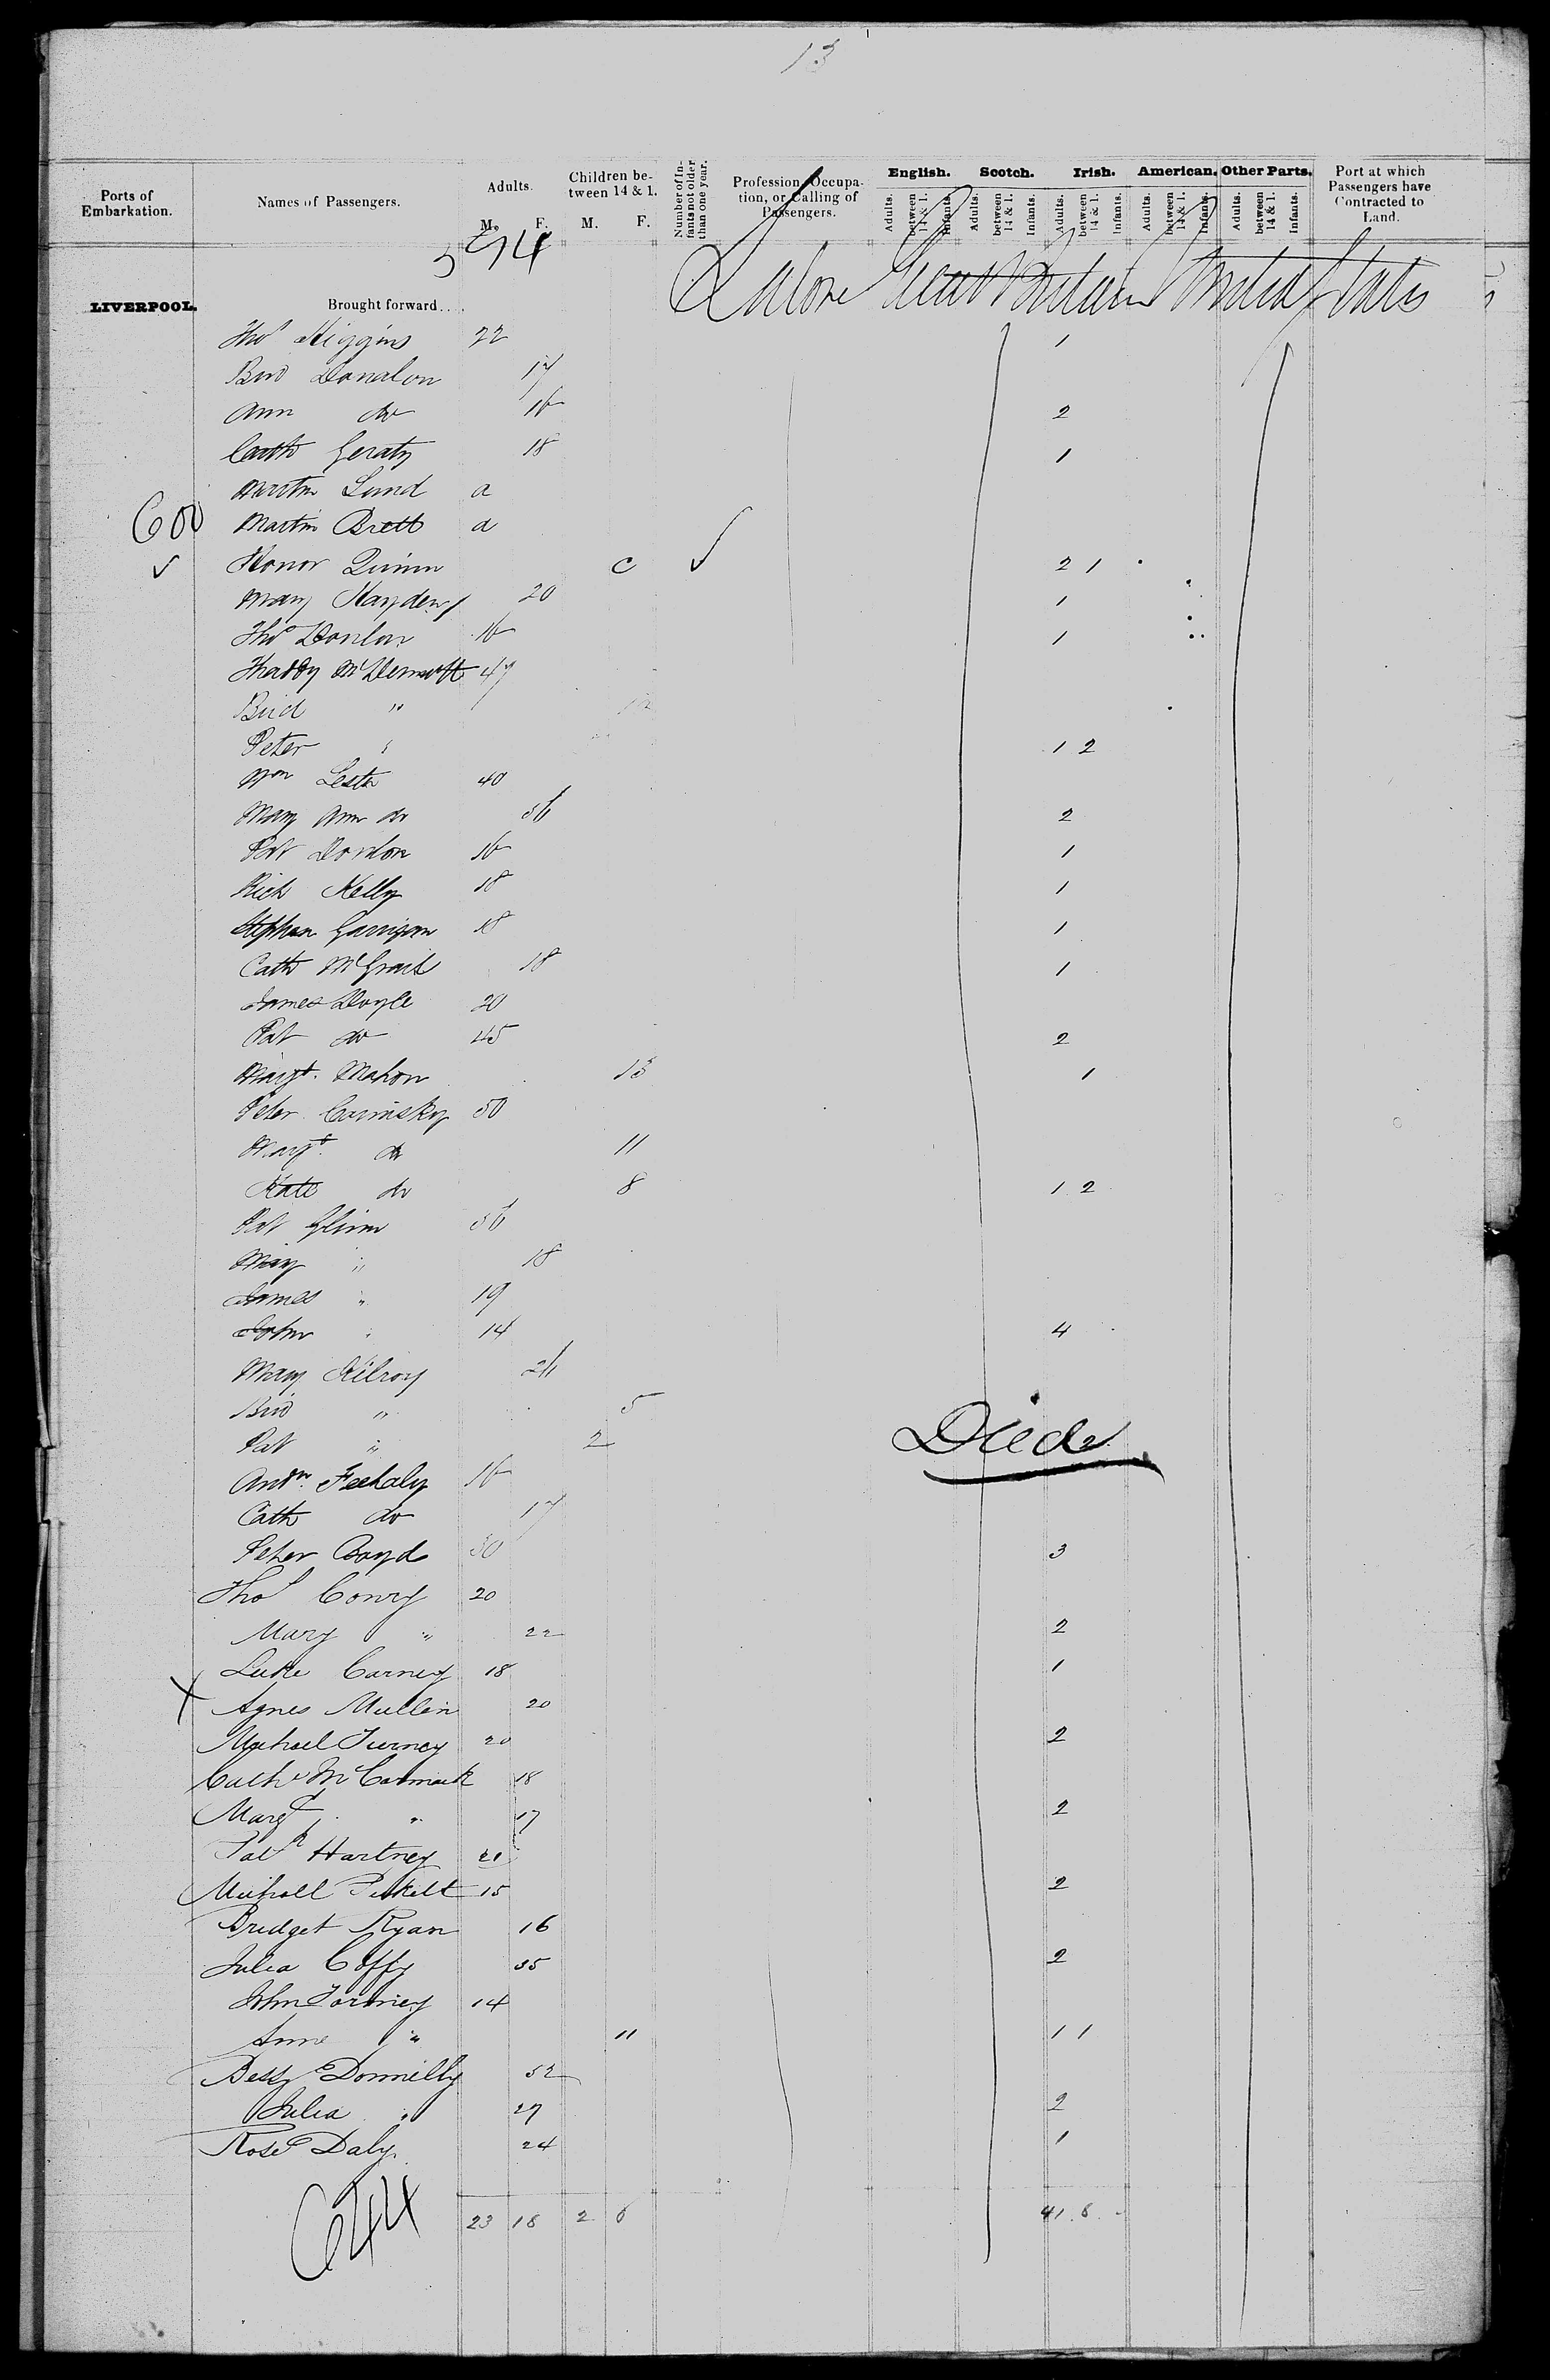 13
Ports of Embarkation. Names of Passengers. Adults. M. F. Children between 14 & 1. M. F. Number of Infants not older than one year. Profession, Occupation, or Calling of Passengers. English. Adults. between 14 & 1. Infants. Scotch. Adults. between 14 & 1. Infants. Irish. Adults. between 14 & 1. Infants. American. Adults. between 14 & 1. Infants. Other Parts. Adults. between 14 & 1. Infants. Port at which Passengers have Contracted to Land.
594
LIVERPOOL. Brought forward.... Great Britain United States
Thos Higgins 22 1
Brid Donalon 17
Ann do 16 2
Cath Geraty 18 1
Martin Lund a
600 Martin Brett a
Honor Quinn C 2 1
Mary Hayden 20 1
Thos Donlon 16 1
McDermott 47
Brid "
Peter " 1 2
Wm Lester 40
Mary Ann do 36 2
Pat Donlon 16 1
Rich Kelly 18 1
Stephen Garrigan 18 1
Cath 18 1
James Doyle 20
Pat do 45 2
Margt. Mahon 13 1
Peter 50
Margt. do 11
Kate do 8 1 2
Pat Glinn 56
Mary " 18
James " 19
John " 14 4
Mary Kilroy 26
Brid " 5
Pat " 2 Died
Andw. Feehaly 16
Cath do 17
Peter Boyd 30 3
Thos Conry 20
Mary " 22 2
Luke Carney 18 1
X Agnes Mullin 20
Michael Turney 20 2
Cath McCormack 18
Margt " 17 2
Patk Hartney 21
Michall 15 2
Bridget Ryan 16
Julia Coffy 35 2
John Tormey 14
Anne " 11 1 1
Bessy Donnilly 52
Julia " 27 2
Rose Daly 24 1
644 23 18 2 6 41 8